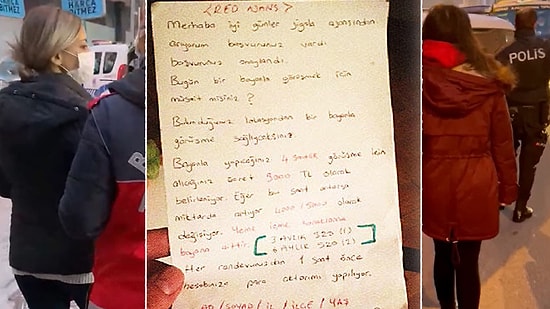 HARCA
BİTMEZ
<RED AJANS>
Merhaba iyi günler jigolo ajansından
arıyorum başvurunuz vardı
başvurunuz onaylandı.
Bugün bir bayanla görüşmek için
müsait misiniz ?
Bulunduğunuz lokasyondan bir bayanla
görüşme sağlıyacaksınız.
Bayanla yapacağınız 4 saatlik görüşme için
alacağınız ücret 3000 TL olarak
belirleniyor. Eğer bu saat artarsa
miktarda artıyor 4000 / 5000 olarak
değişiyor. Yeme içme konaklama
bayana aittir.
3 AYLIK 350 (1)
6 AYLIK 520 (2)
Her randevunuzdan 1 saat önce
hesabınıza para aktarımı yapılıyor.
AD / SOYAD / İL / İLÇE / YAŞ
HARCA
BİTMEZ
POLİS